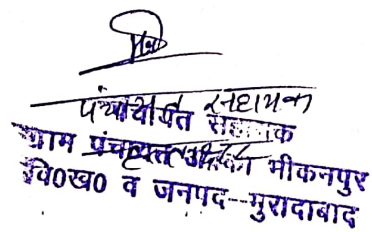 पंचायत सहायक
पंचायत सहायक
ग्राम पंचायत भीकनपुर
वि०ख० व जनपद--मुरादाबाद